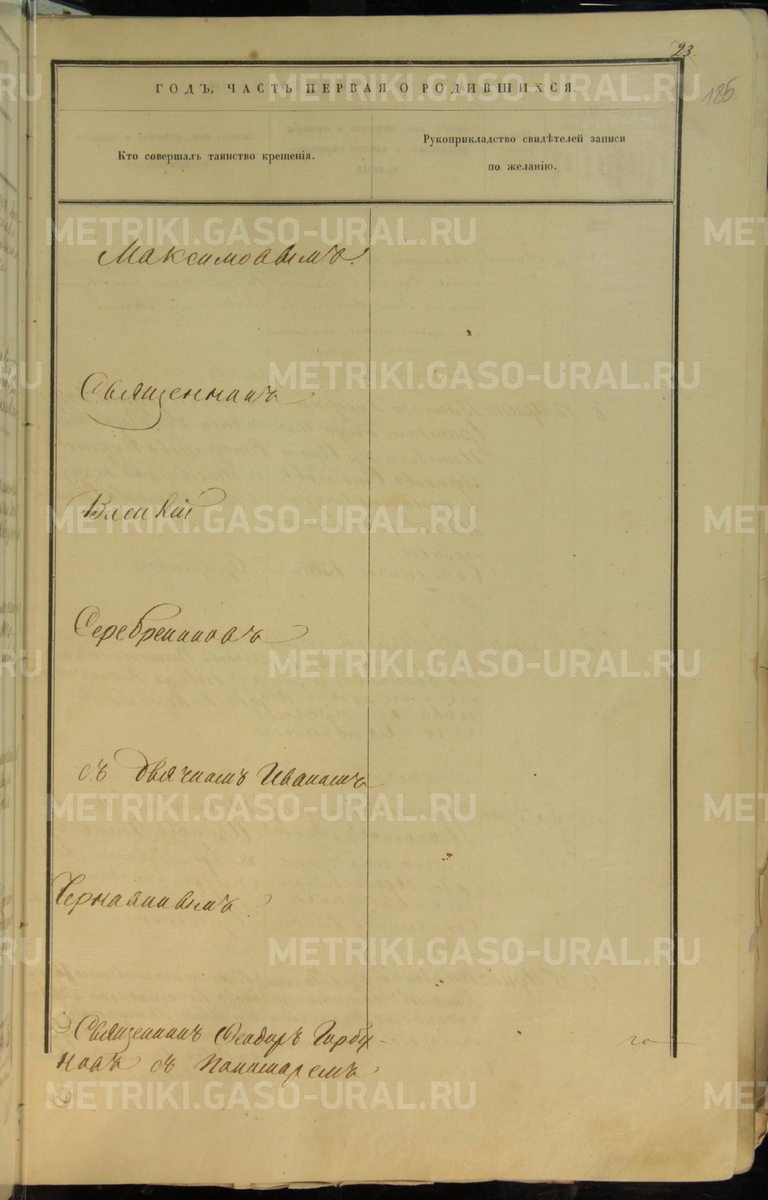 23.
185
ГОДЪ, ЧАСТЬ ПЕРВАЯ О РОДИВШИХСЯ.
Кто совершалъ таинство крещенія.
Рукоприкладство свидѣтелей записи
по желанію.
METRIKI.GASO-URAL.RU
Максимовымъ.
Священникъ
Серебренниковъ
съ дьячкомъ Иваномъ
Священникъ Ѳеодоръ Горбу-
новъ съ Пономаремъ